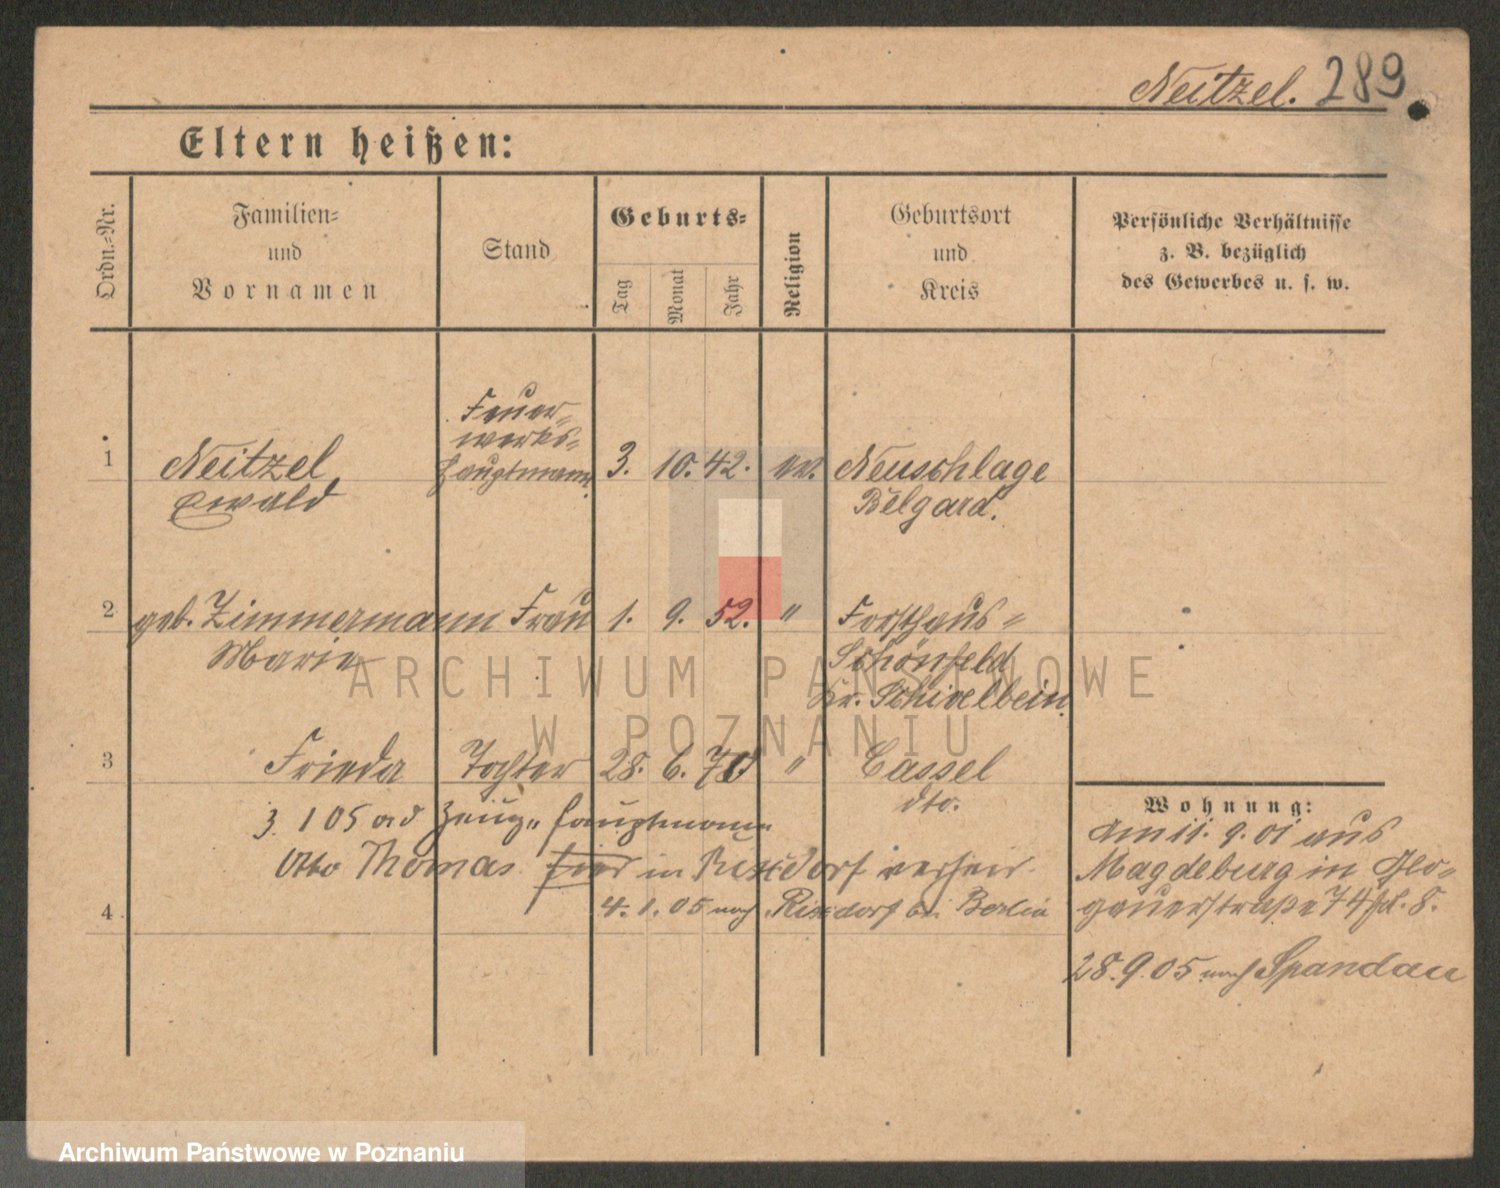 Neitzel. 289
Eltern heißen:
Ordn.-Nr.
Familien-
und
Vornamen
Stand
Geburts-
Tag
Monat
Jahr
Religion
Geburtsort
und
Kreis
Persönliche Verhältnisse
z. B. bezüglich
des Gewerbes u. s. w.
1
Neitzel
Ewald
Feuer-
werks-
hauptmann
3. 10. 42. ev.
Neuschlage
Belgard.
2
geb. Zimmermann Frau 1. 9. 52. "
Marie
Forsthaus-
Schönfeld
Kr. Schivelbein
3
Frieda Tochter 28. 6. "
Cassel
dto.
3 1 05 Zeug-hauptmann
Otto Thomas hier in Rixdorf verheir.
4
4. 1. 05 nach Rixdorf bei Berlin
Wohnung:
Am 11. 9. 01 aus
Magdeburg in Glo-
gauerstraße 74
28. 9. 05 nach Spandau
ARCHIWUM PAŃSTWOWE
W POZNANIU
Archiwum Państwowe w Poznaniu